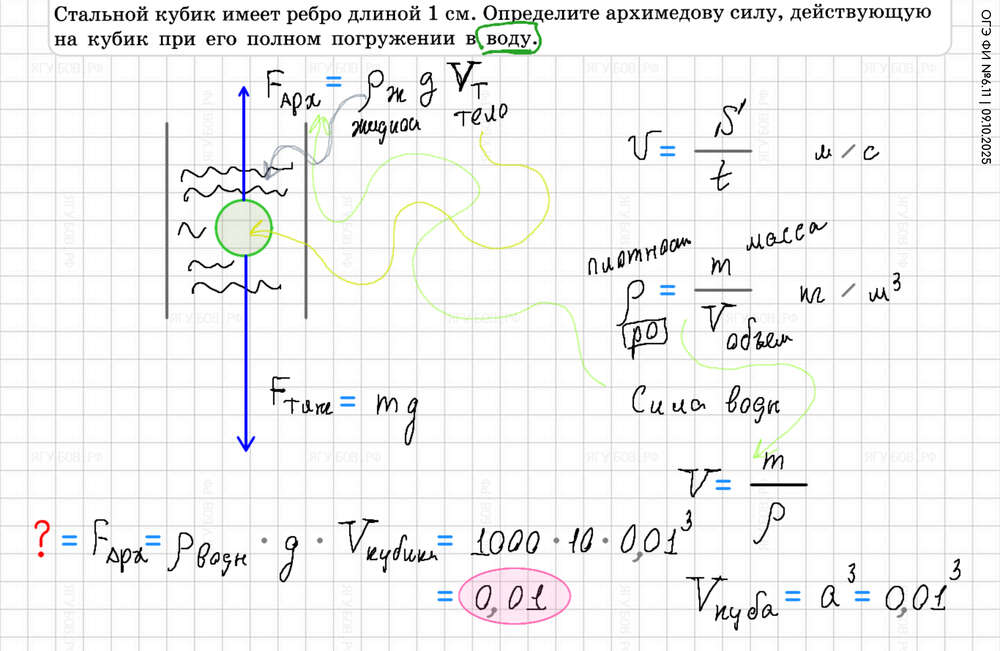 Стальной кубик имеет ребро длиной 1 см. Определите архимедову силу, действующую
на кубик при его полном погружении в воду.
ОГЭ ФИ №6.11 | 09.10.2025
F Арх = ρж g Vт
жидкость тело
V = S / t м / с
плотность масса
ρ = m / V кг / м³
ро объем
Fтяж = mg
Сила воды
V = m / ρ
? = FАрх = ρводы · g · Vкубика = 1000 · 10 · 0,01³
= 0,01
Vкуба = a³ = 0,01³
ЯГУБОВ.РФ